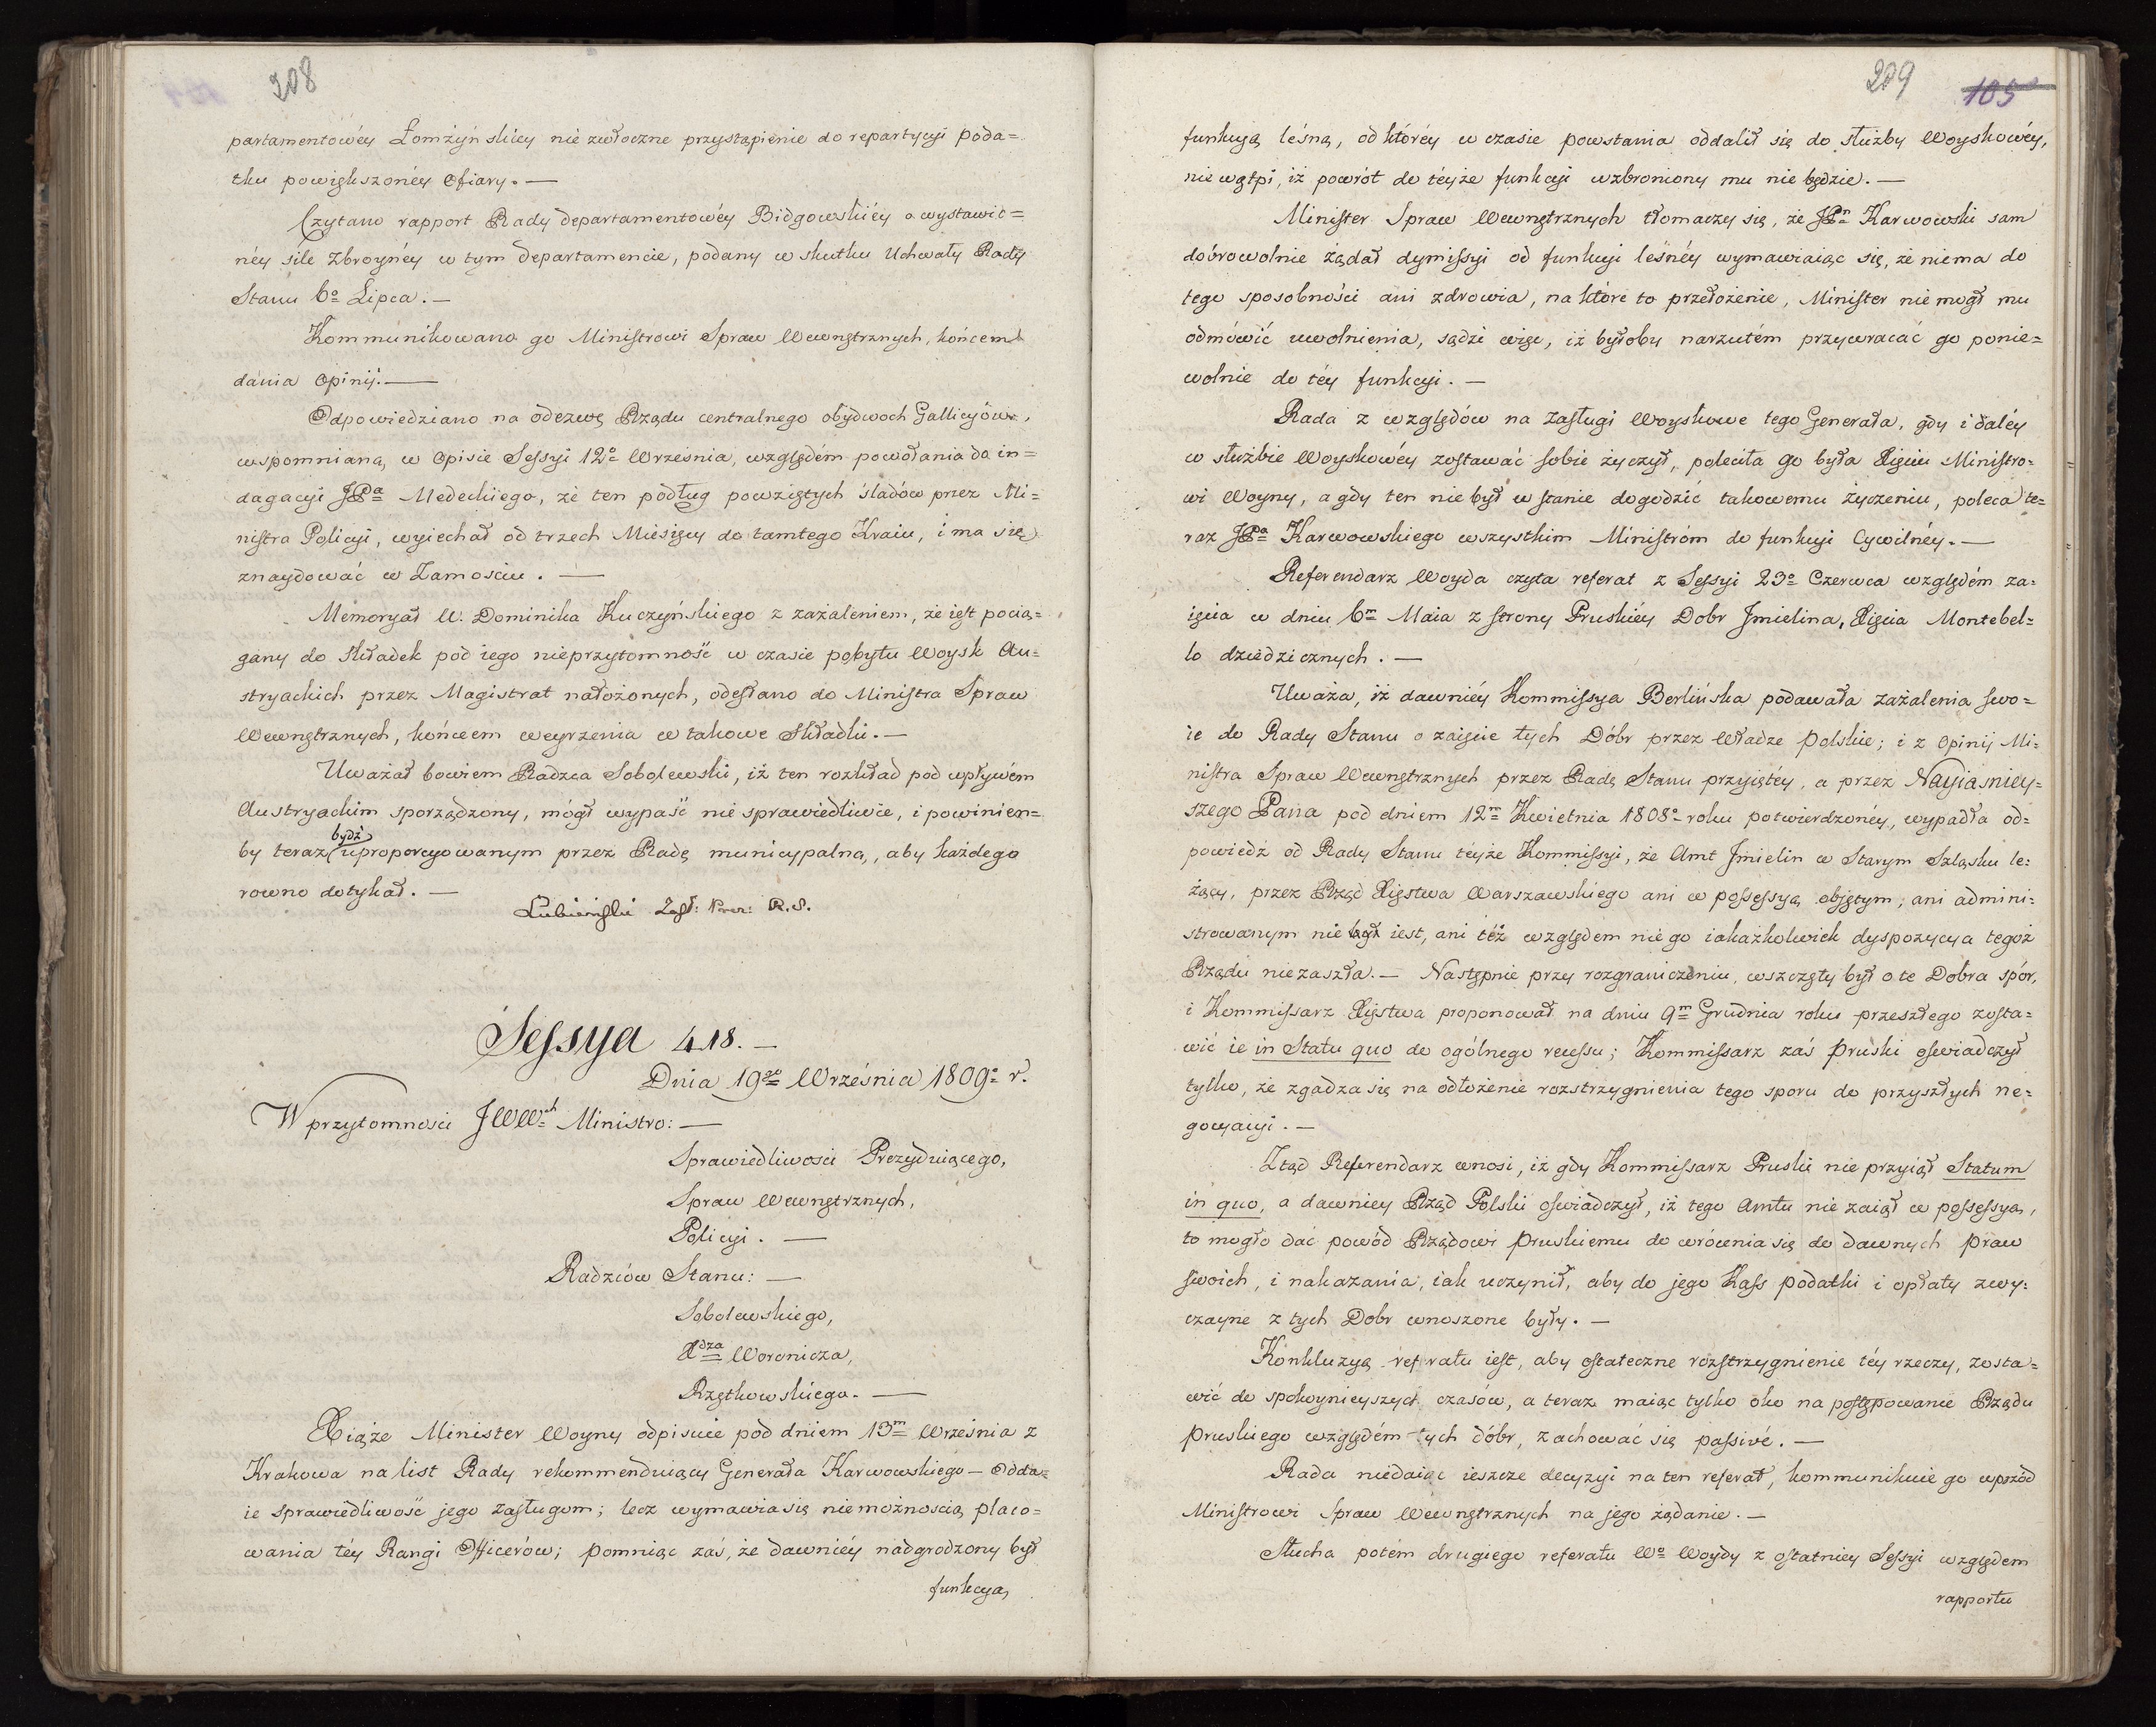 208
partamentowéy Łomżyńskiey nie zwłoczne przystąpienie do repartycyi poda=
tku powiększonéy Ofiary. —
Czytano rapport Rady departamentowéy Bidgowskiéy o wystawio=
néy sile Zbroynéy w tym departamencie, podany w skutku Uchwały Rady
Stanu 6º Lipca. —
Kommunikowano go Ministrowi Spraw Wewnętrznych, końcem
dania Opinij. —
Odpowiedziano na odezwę Rządu centralnego obydwoch Gallicyów,
wspomnianą w Opisie Sessyi 12º Września, względém powołania do in=
dagacyi JPa Medeckiego, że ten podług powziętych śladów przez Mi=
nistra Policyi, wyiechał od trzech Miesięcy do tamtego Kraiu, i ma się
znaydować w Zamosciu. —
Memoryał W. Dominika Kuczyńskiego z zażaleniem, że iest pocią=
gany do składek pod iego nieprzytomność w czasie pobytu Woysk Au=
stryackich przez Magistrat nałożonych, odesłano do Ministra Spraw
Wewnętrznych, końcem weyrzenia w takowe składki. —
Uważał bowiem Radzca Sobolewski, iż ten rozkład pod wpływém
Austryackim sporządzony, mógł wypaść nie sprawiedliwie, i powinien=
by teraz bydź uproporcyowanym przez Radę municypalną, aby każdego
rowno dotykał. —
Lubieński Zast: Prez: R.S.
Sessya 418. —
Dnia 19go Września 1809º r.
W przytomnosci JWWch Ministro: —
Sprawiedliwosci Prezyduiącego,
Spraw Wewnętrznych,
Policyi. —
Radzców Stanu: —
Sobolewskiego,
Xdza Woronicza,
Rzętkowskiego. —
Xiąże Minister Woyny odpisuie pod dniem 13m Września z
Krakowa na list Rady rekommenduiący Generała Karwowskiego — Odda=
ie sprawiedliwość jego zasługom; lecz wymawia się niemożnoscią placo=
wania téy Rangi Officerów; pomniąc zaś, że dawniéy nadgrodzony był
funkcyą
209
105
funkcyą leśną, od któréy w czasie powstania oddalił się do służby Woyskowéy,
nie wątpi, iż powrót do téyże funkcyi wzbroniony mu nie będzie. —
Minister Spraw Wewnętrznych tłomaczy się, że JPn Karwowski sam
dobrowolnie żądał dymissyi od funkcyi leśnéy wymawiaiąc się, że niema do
tego sposobności ani zdrowia, na które to przełożenie, Minister nie mogł mu
odmówić uwolnienia, sądzi więc, iż byłoby narzutém przywracać go ponie=
wolnie do téy funkcyi. —
Rada z względów na zasługi Woyskowe tego Generała, gdy i daléy
w służbie Woyskowéy zostawać sobie życzył, poleciła go była Xięciu Ministro=
wi Woyny, a gdy ten nie był w stanie dogodzić takowemu życzeniu, poleca te=
raz JPa Karwowskiego wszystkim Ministróm do funkcyi Cywilnéy. —
Referendarz Woyda czyta referat z Sessyi 23º Czerwca względém za=
ięcia w dniu 6m Maia z strony Pruskiéy Dobr Jmielina, Xięcia Montebel=
lo dziedzicznych. —
Uważa, iż dawniéy Kommissya Berlińska podawała zażalenia swo=
ie do Rady Stanu o zaięcie tych Dóbr przez Władze Polskie; i z Opinij Mi=
nistra Spraw Wewnętrznych przez Radę Stanu przyiętéy, a przez Nayiasniey=
szego Pana pod dniem 12m Kwietnia 1808º roku potwierdzonéy, wypadła od=
powiedź od Rady Stanu téyże Kommissyi, że Amt Jmielin w Starym Szląsku le=
żący, przez Rząd Xięstwa Warszawskiego ani w possessyą objętym, ani admini=
strowanym nie iest, ani téż względem niego iakażkolwiek dyspozycya tegoż
Rządu niezaszła. — Następnie przy rozgraniczeniu, wszczęty był o te Dobra spór,
i Kommissarz Xięstwa proponował na dniu 9m Grudnia roku przeszłego zosta=
wić ie in Statu quo do ogólnego recessu; Kommissarz zaś Pruski oswiadczył
tylko, że zgadza się na odłożenie rozstrzygnienia tego sporu do przyszłych ne=
gocyacyi. —
Ztąd Referendarz wnosi, iż gdy Kommissarz Pruski nie przyiął Statum
in quo, a dawniey Rząd Polski oswiadczył, iż tego Amtu nie zaiął w possessyą,
to mogło dać powód Rządowi Pruskiemu do wrócenia się do dawnych praw
swoich, i nakazania, iak uczynił, aby do jego Kass podatki i opłaty zwy=
czayne z tych Dobr wnoszone były. —
Konkluzyą referatu iest, aby ostateczne rozstrzygnienie téy rzeczy, zosta=
wić do spokoynieyszych czasów, a teraz maiąc tylko oko na postępowanie Rządu
Pruskiego względém tych dóbr, zachować się passivé. —
Rada niedaiąc ieszcze decyzyi na ten referat, kommunikuie go wprzód
Ministrowi Spraw Wewnętrznych na jego żądanie. —
Słucha potem drugiego referatu Wº Woydy z ostatniey Sessyi względem
rapportu